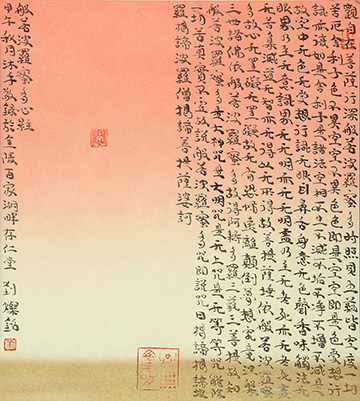 觀自在菩薩行深般若波羅蜜多時照見五蘊皆空度一切
苦厄舍利子色不異空空不異色色即是空空即是色受想行
識亦復如是舍利子是諸法空相不生不滅不垢不淨不增不減是
故空中无色无受想行識无眼耳鼻舌身意无色聲香味觸法无
眼界乃至无意識界无无明亦无无明盡乃至无老死亦无老死盡
无苦集滅道无智亦无得以无所得故菩提薩埵依般若波羅蜜
多故心无罣礙无罣礙故无有恐怖遠離顛倒夢想究竟涅槃
三世諸佛依般若波羅蜜多故得阿耨多羅三藐三菩提故知
般若波羅蜜多是大神咒是大明咒是无上咒是无等等咒能除一
切苦真實不虛故說般若波羅蜜多咒即說咒曰揭諦揭諦波
羅揭諦波羅僧揭諦菩提薩婆訶
般若波羅蜜多心經
甲午秋月沐手敬錄於金陵百家湖畔存仁堂 劉燦銘